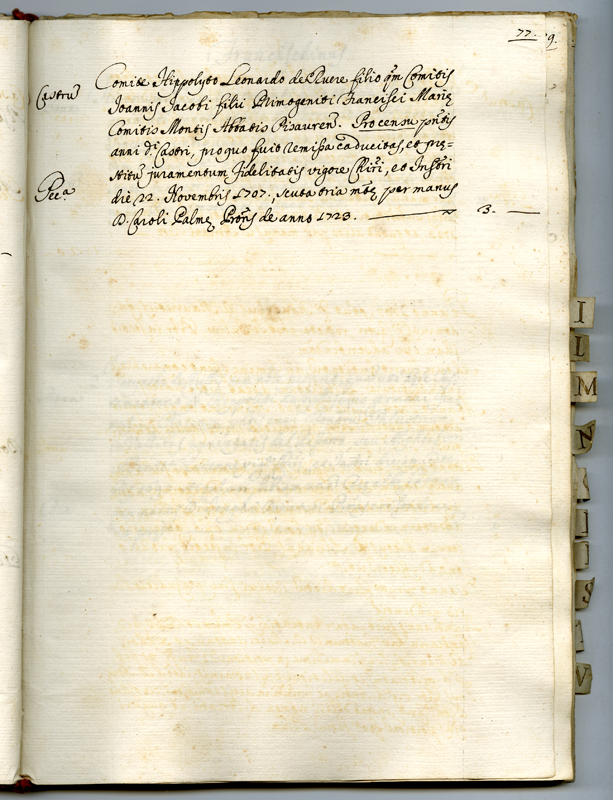 77. 9.
Castrũ
Comite Hippolyto Leonardo de Ruere filio qm̃ Comitis
Ioannis Iacobi filii Primogeniti Francisci Mariæ
Comitis Montis Abbatis Pisauren̄. Pro censu pn̄tis
anni d.i Castri, pro quo fuit remissa caducitas, et præ=
stitũ juramentum fidelitatis vigore Chir̃i, et Instr̃i
Pec.a
die 22. Novembris 1707, scuta tria mtæ per manus
D. Caroli Palmæ Pro ris de anno 1723. 3.
I
L
M
N
S
V